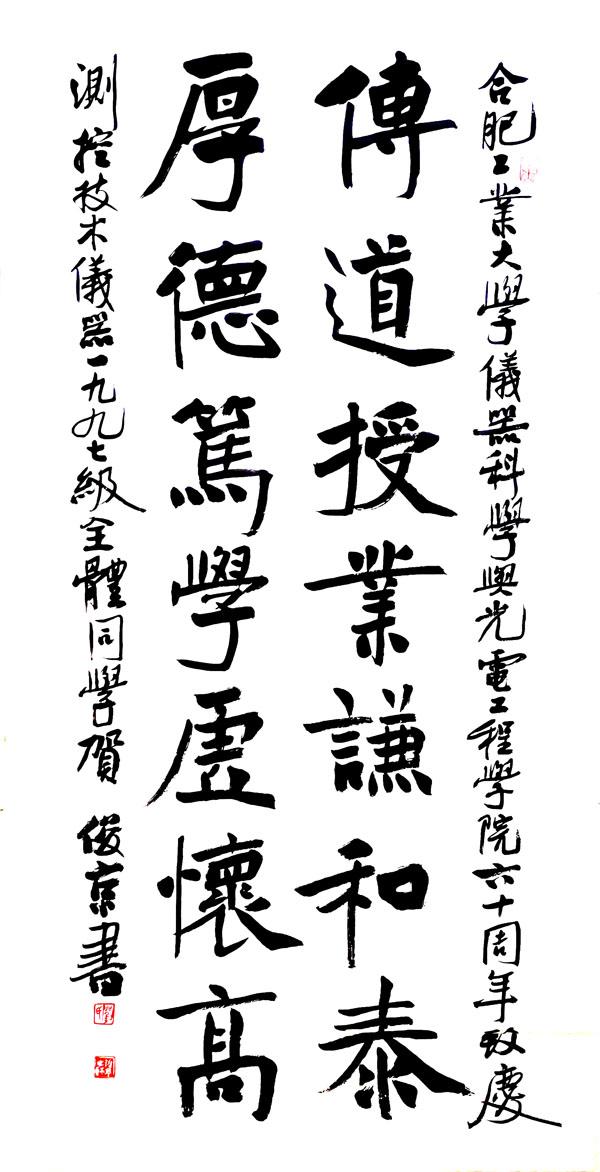 合肥工業大學儀器科學與光電工程學院六十周年致慶
傳道授業謙和泰
厚德篤學虛懷高
測控技术儀器一九九七級全體同學賀 俊京書